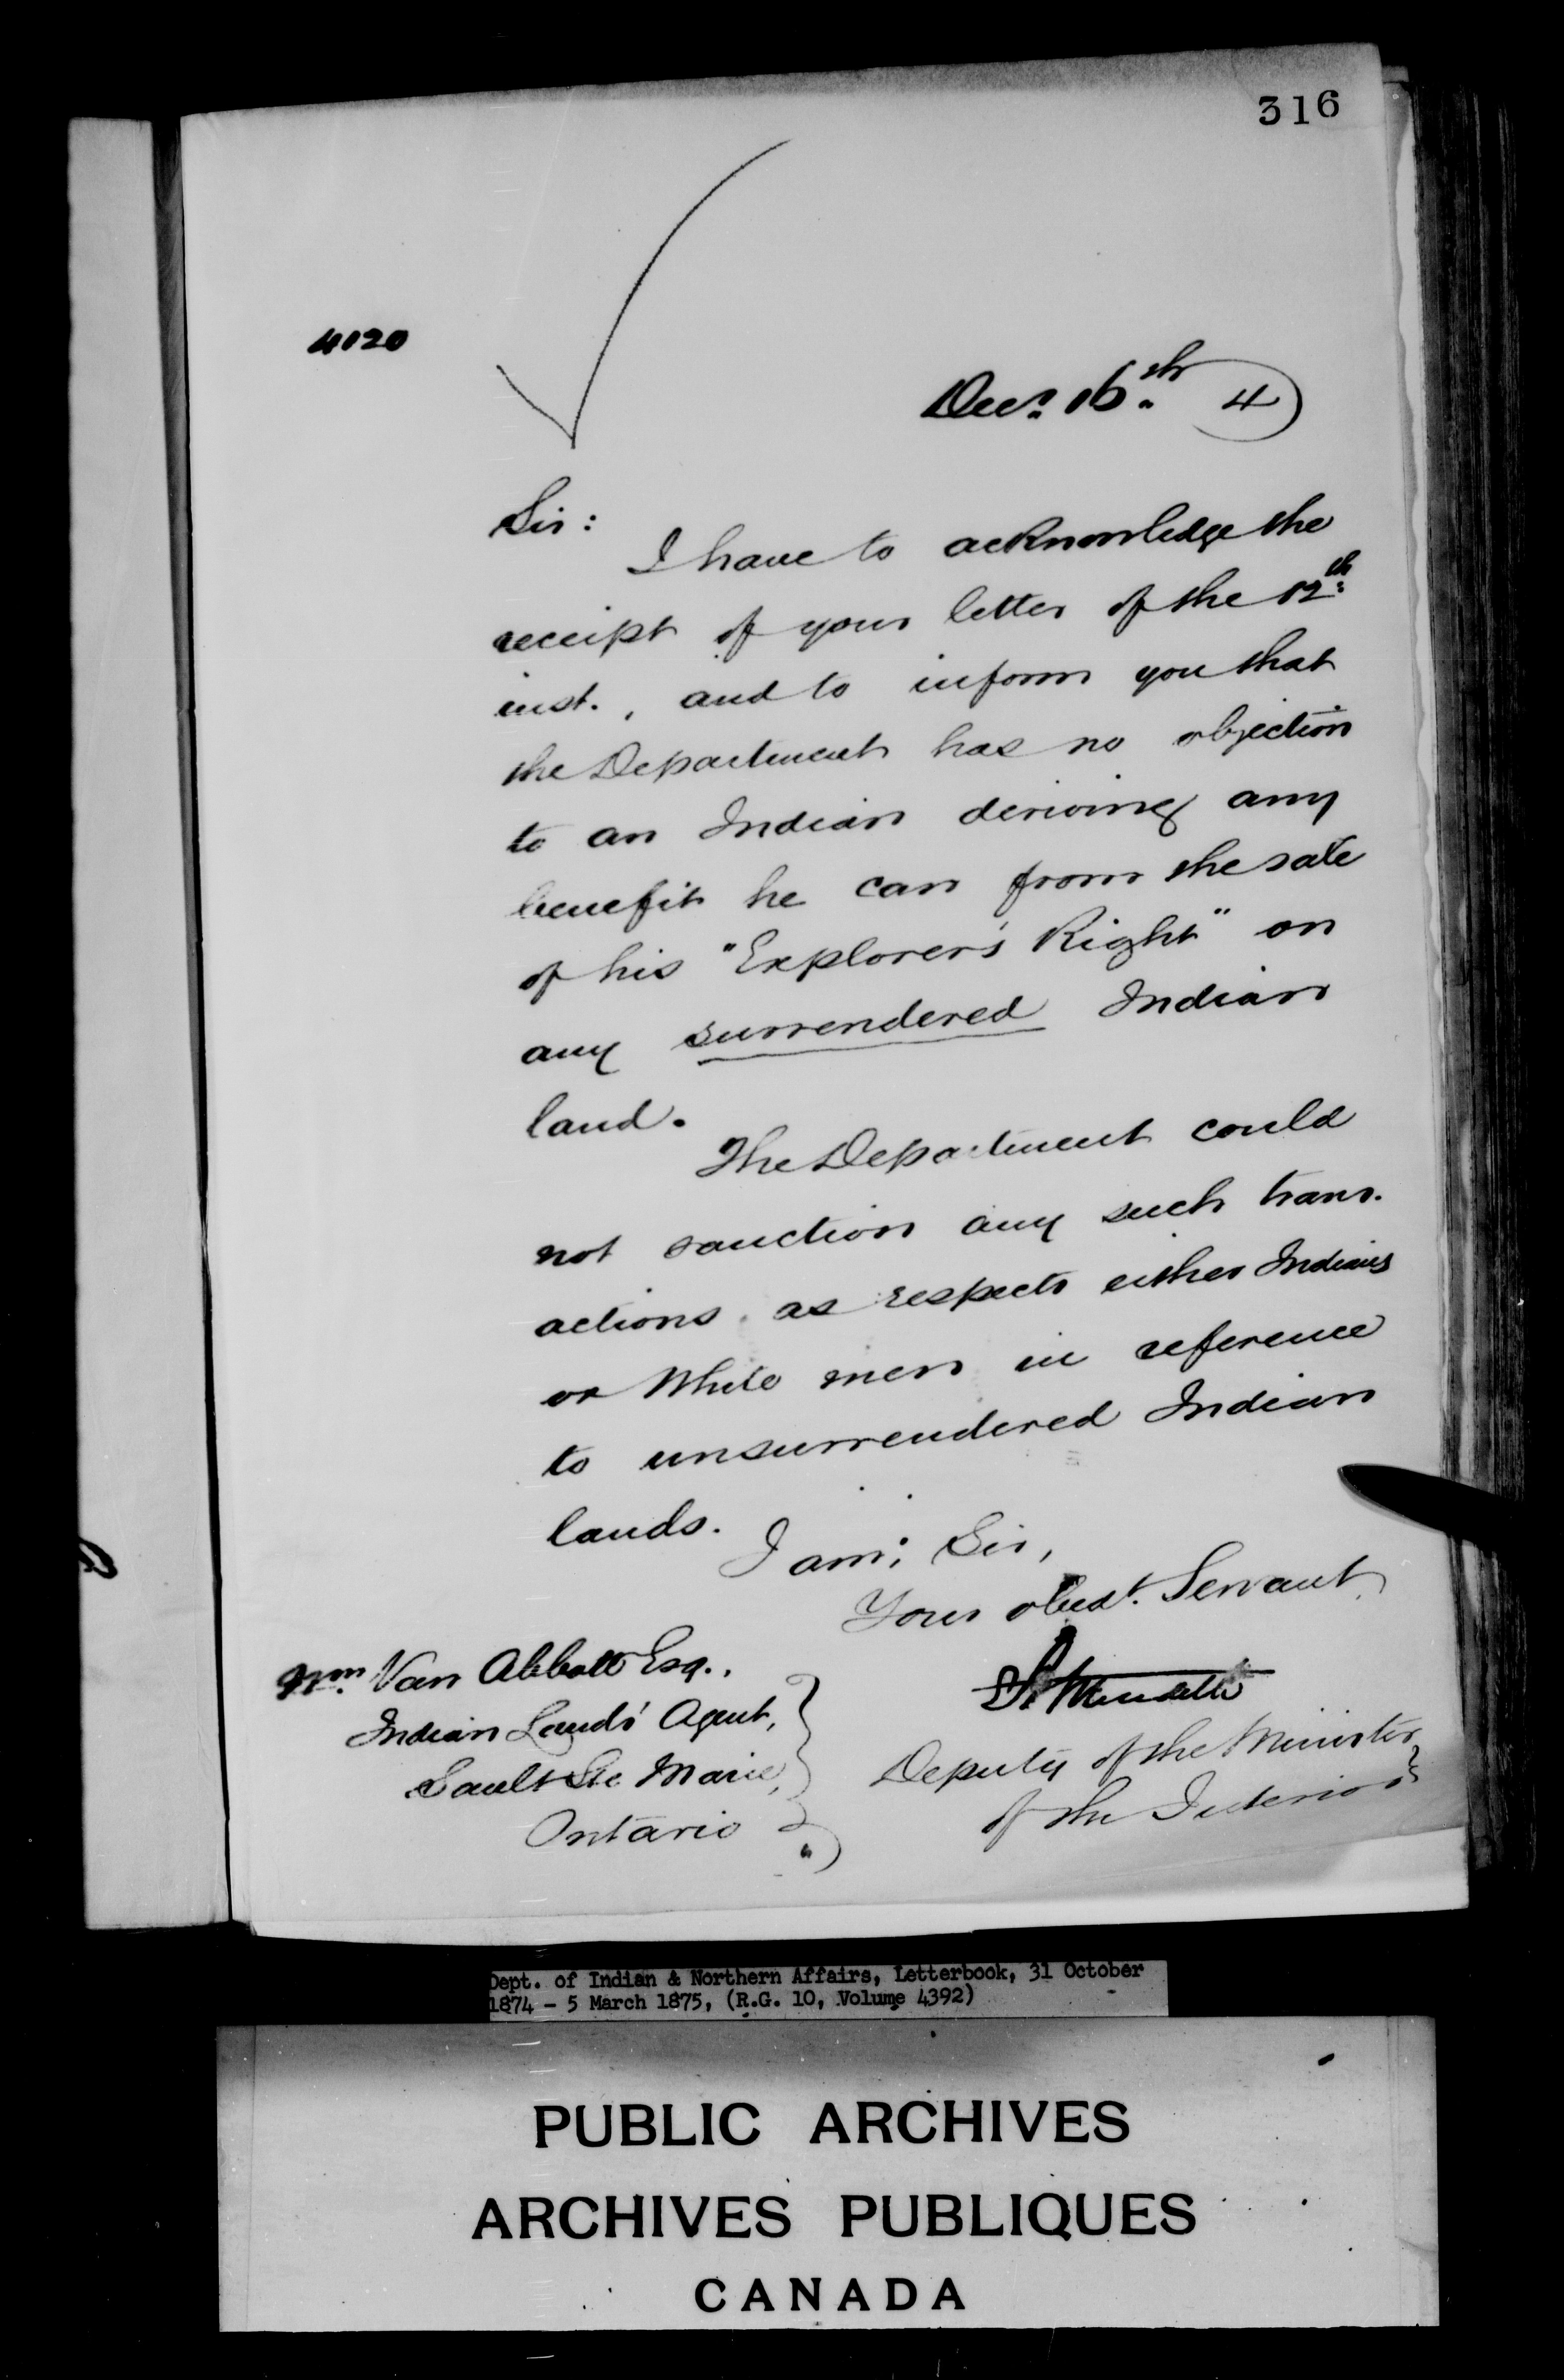 316
4020
Decr. 16th. 4
Sir:
I have to acknowledge the
receipt of your letter of the 12th:
inst., and to inform you that
the Department has no objection
to an Indian deriving any
benefit he can from the sale
of his "Explorer's Right" on
any surrendered Indian
land.
The Department could
not sanction any such trans-
actions as respects either Indians
or White men in reference
to unsurrendered Indian
lands.
I am; Sir,
Your obedt. Servant
Wm. Van Abbott Esq.,
Indian Lands' Agent,
Sault Ste Marie,
Ontario
Deputy of the Minister
of the Interior
Dept. of Indian & Northern Affairs, Letterbook, 31 October
1874 - 5 March 1875, (R.G. 10, Volume 4392)
PUBLIC ARCHIVES
ARCHIVES PUBLIQUES
CANADA